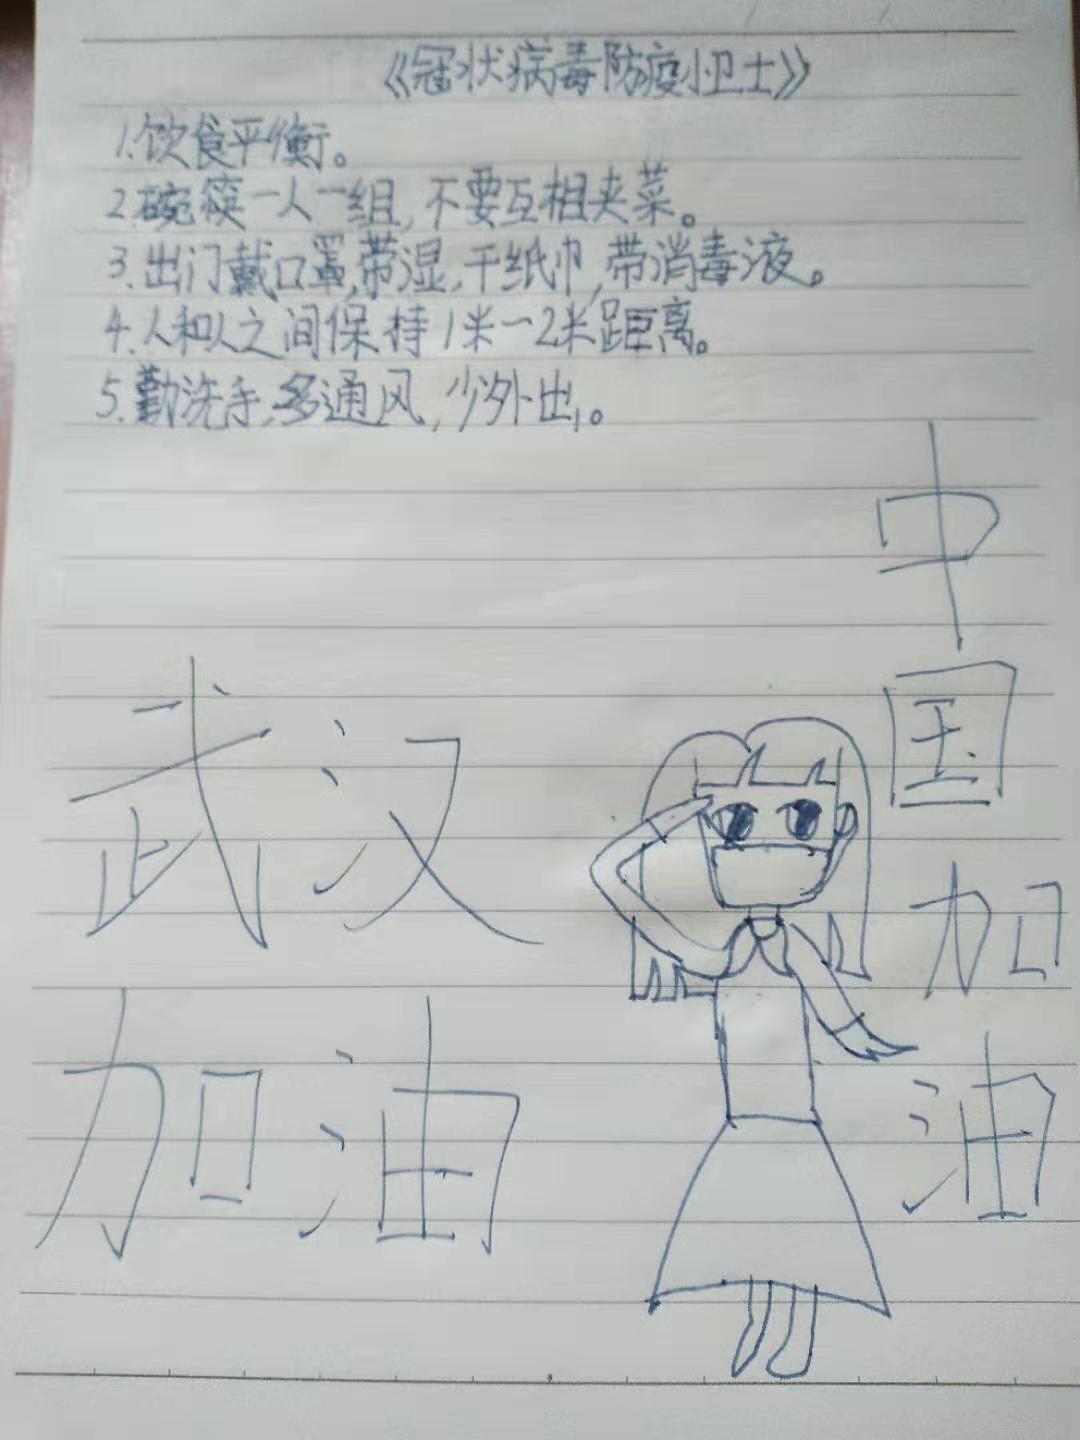 《冠状病毒防疫小卫士》
1.饮食平衡。
2.碗筷一人一组,不要互相夹菜。
3.出门戴口罩,带湿,干纸巾,带消毒液。
4.人和人之间保持1米一2米距离。
5.勤洗手,多通风,少外出,。
武汉
加油
中
国
加
油